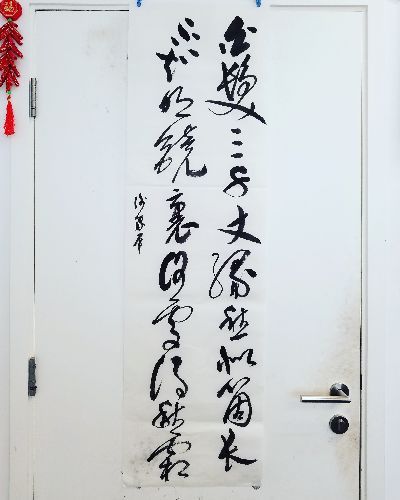 白髮三千丈緣愁似箇長
不知明鏡裏何處得秋霜